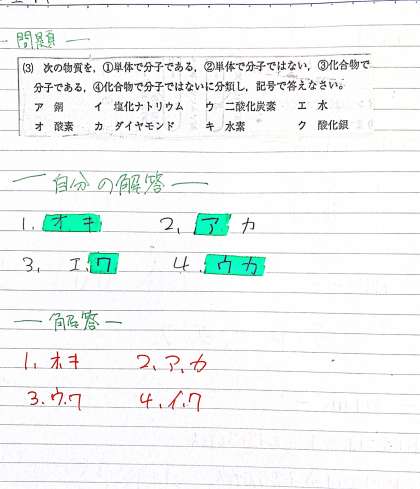 問題
(3) 次の物質を，①単体で分子である，②単体で分子ではない，③化合物で
分子である，④化合物で分子ではないに分類し，記号で答えなさい。
ア 銅 イ 塩化ナトリウム ウ 二酸化炭素 エ 水
オ 酸素 カ ダイヤモンド キ 水素 ク 酸化銀
自分の解答
1. オ キ 2. ア カ
3. エ ウ 4. ウ カ
解答
1. オ キ 2. ア、カ
3. ウ.ワ 4. イ.ワ